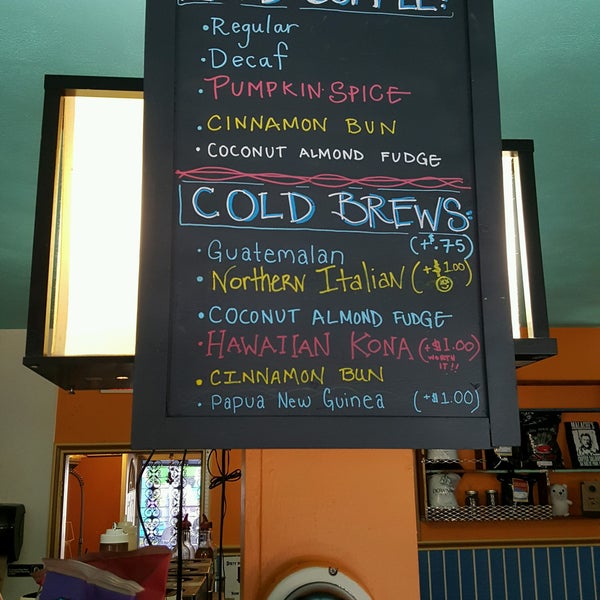 COFFEE:
• Regular
• Decaf
• PUMPKIN SPICE
• CINNAMON BUN
• COCONUT ALMOND FUDGE
COLD BREWS:
(+$.75)
• Guatemalan
• Northern Italian (+$1.00)
• COCONUT ALMOND FUDGE
• HAWAIIAN KONA (+$1.00)
WORTH
IT!!
• CINNAMON BUN
• PAPUA NEW GUINEA (+$1.00)